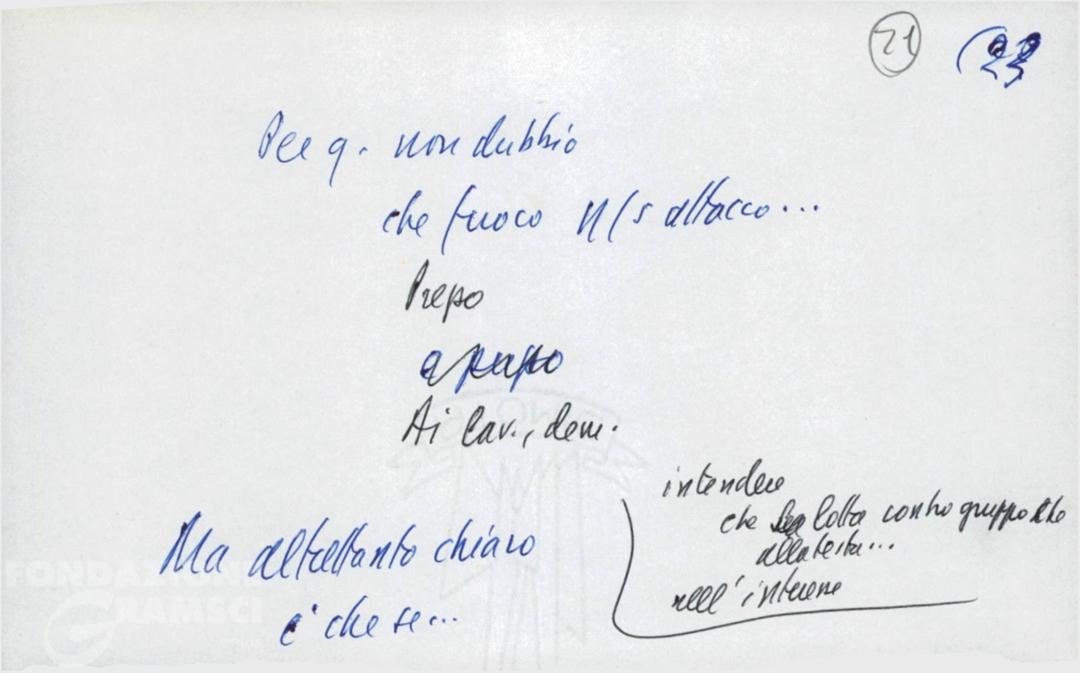 21
Per q. non dubbio
che fuoco n/s attacco...
Prepo
Ai lav., dem.
intendere
che lotta contro gruppo
alla testa...
nell'
Ma altrettanto chiaro
è che se...
FONDAZIONE
GRAMSCI